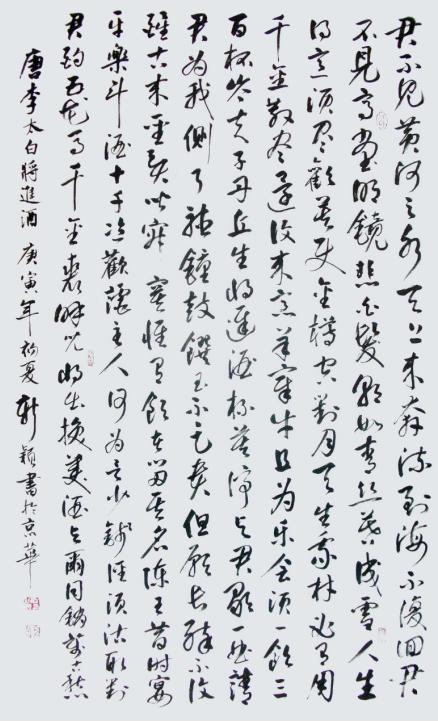 君不见黄河之水天上来奔流到海不復回君
不見高堂明鏡悲白髮朝如青丝暮成雪人生
得意须尽歡莫使金樽空對月天生我材必有用
千金散尽還復来烹羊宰牛且为乐会须一飲三
百杯岑夫子丹丘生将進酒杯莫停与君歌一曲請
君为我側耳聽鐘鼓饌玉不足贵但願长醉不復
醒古来聖贤皆寂寞惟有飲者留其名陈王昔时宴
平樂斗酒十千恣歡謔主人何为言少錢径须沽取對
君酌五花马千金裘呼兒将出换美酒与爾同銷萬古愁
唐李太白將進酒庚寅年初夏靳穎書於京華